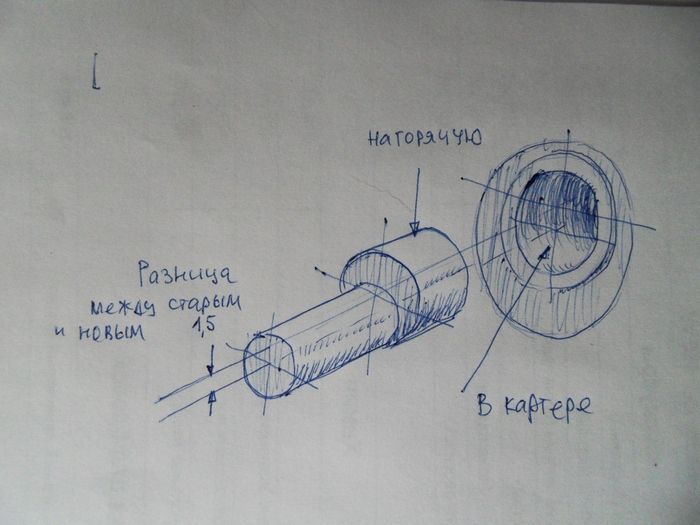 нагорячую
Разница
между старым
и новым 1,5
в картере